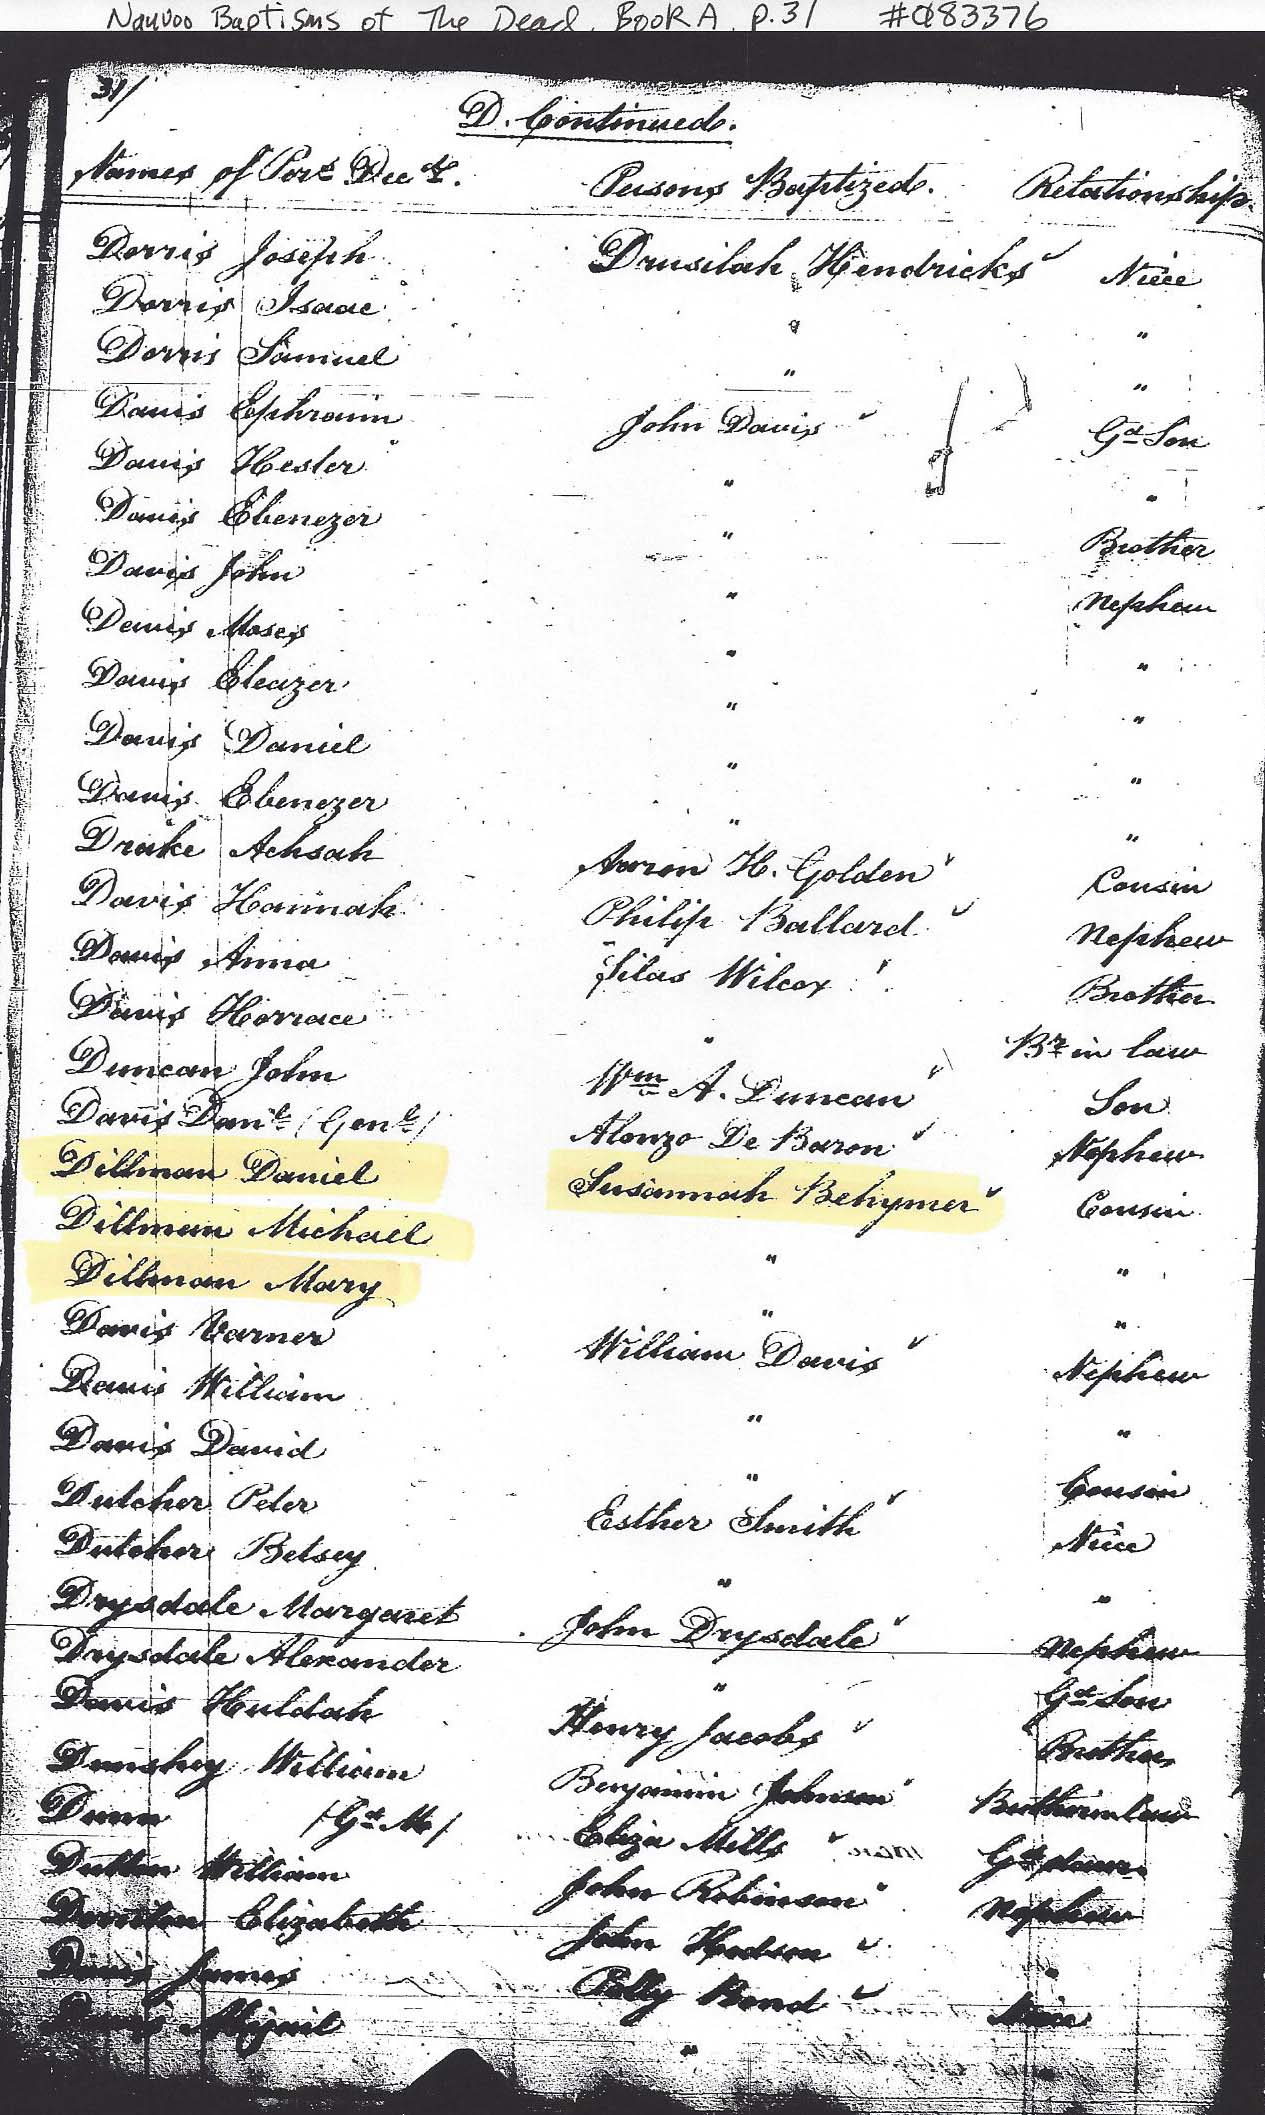 Nauvoo Baptisms of The Dead, Book A, p. 31 #083376
31/
D. Continued.
Names of Pers Decd. Persons Baptized. Relationship.
Dorris Joseph Drusilah Hendricks Niece
Dorris Isaac " "
Dorris Samuel " "
Davis Ephraim John Davis Gd Son
Davis Hester " "
Davis Ebenezer " Brother
Davis John " Nephew
Davis Moses " "
Davis Eleazer " "
Davis Daniel " "
Davis Ebenezer " "
Drake Achsah Aaron H. Golden Cousin
Davis Hannah Philip Ballard Nephew
Davis Anna Silas Wilcox Brother
Davis Horrace " Br in law
Duncan John Wm A. Duncan Son
Davis Danl (Genl) Alonzo De Baron Nephew
Dillman Daniel Susannah Behymer Cousin
Dillman Michael " "
Dillman Mary " "
Davis Varner William Davis Nephew
Davis William " "
Davis David " Cousin
Dutcher Peter Esther Smith Niece
Dutcher Betsey " "
Drysdale Margaret John Drysdale Nephew
Drysdale Alexander " Gd Son
Davis Huldah Henry Jacobs Brother
William Benjamin Johnson Brother in law
Dunn /Gd M/ Eliza Mills Gd daur
Dutton William John Robinson Nephew
Elizabeth John Hudson "
Davis James Polly Bond Niece
Davis " "